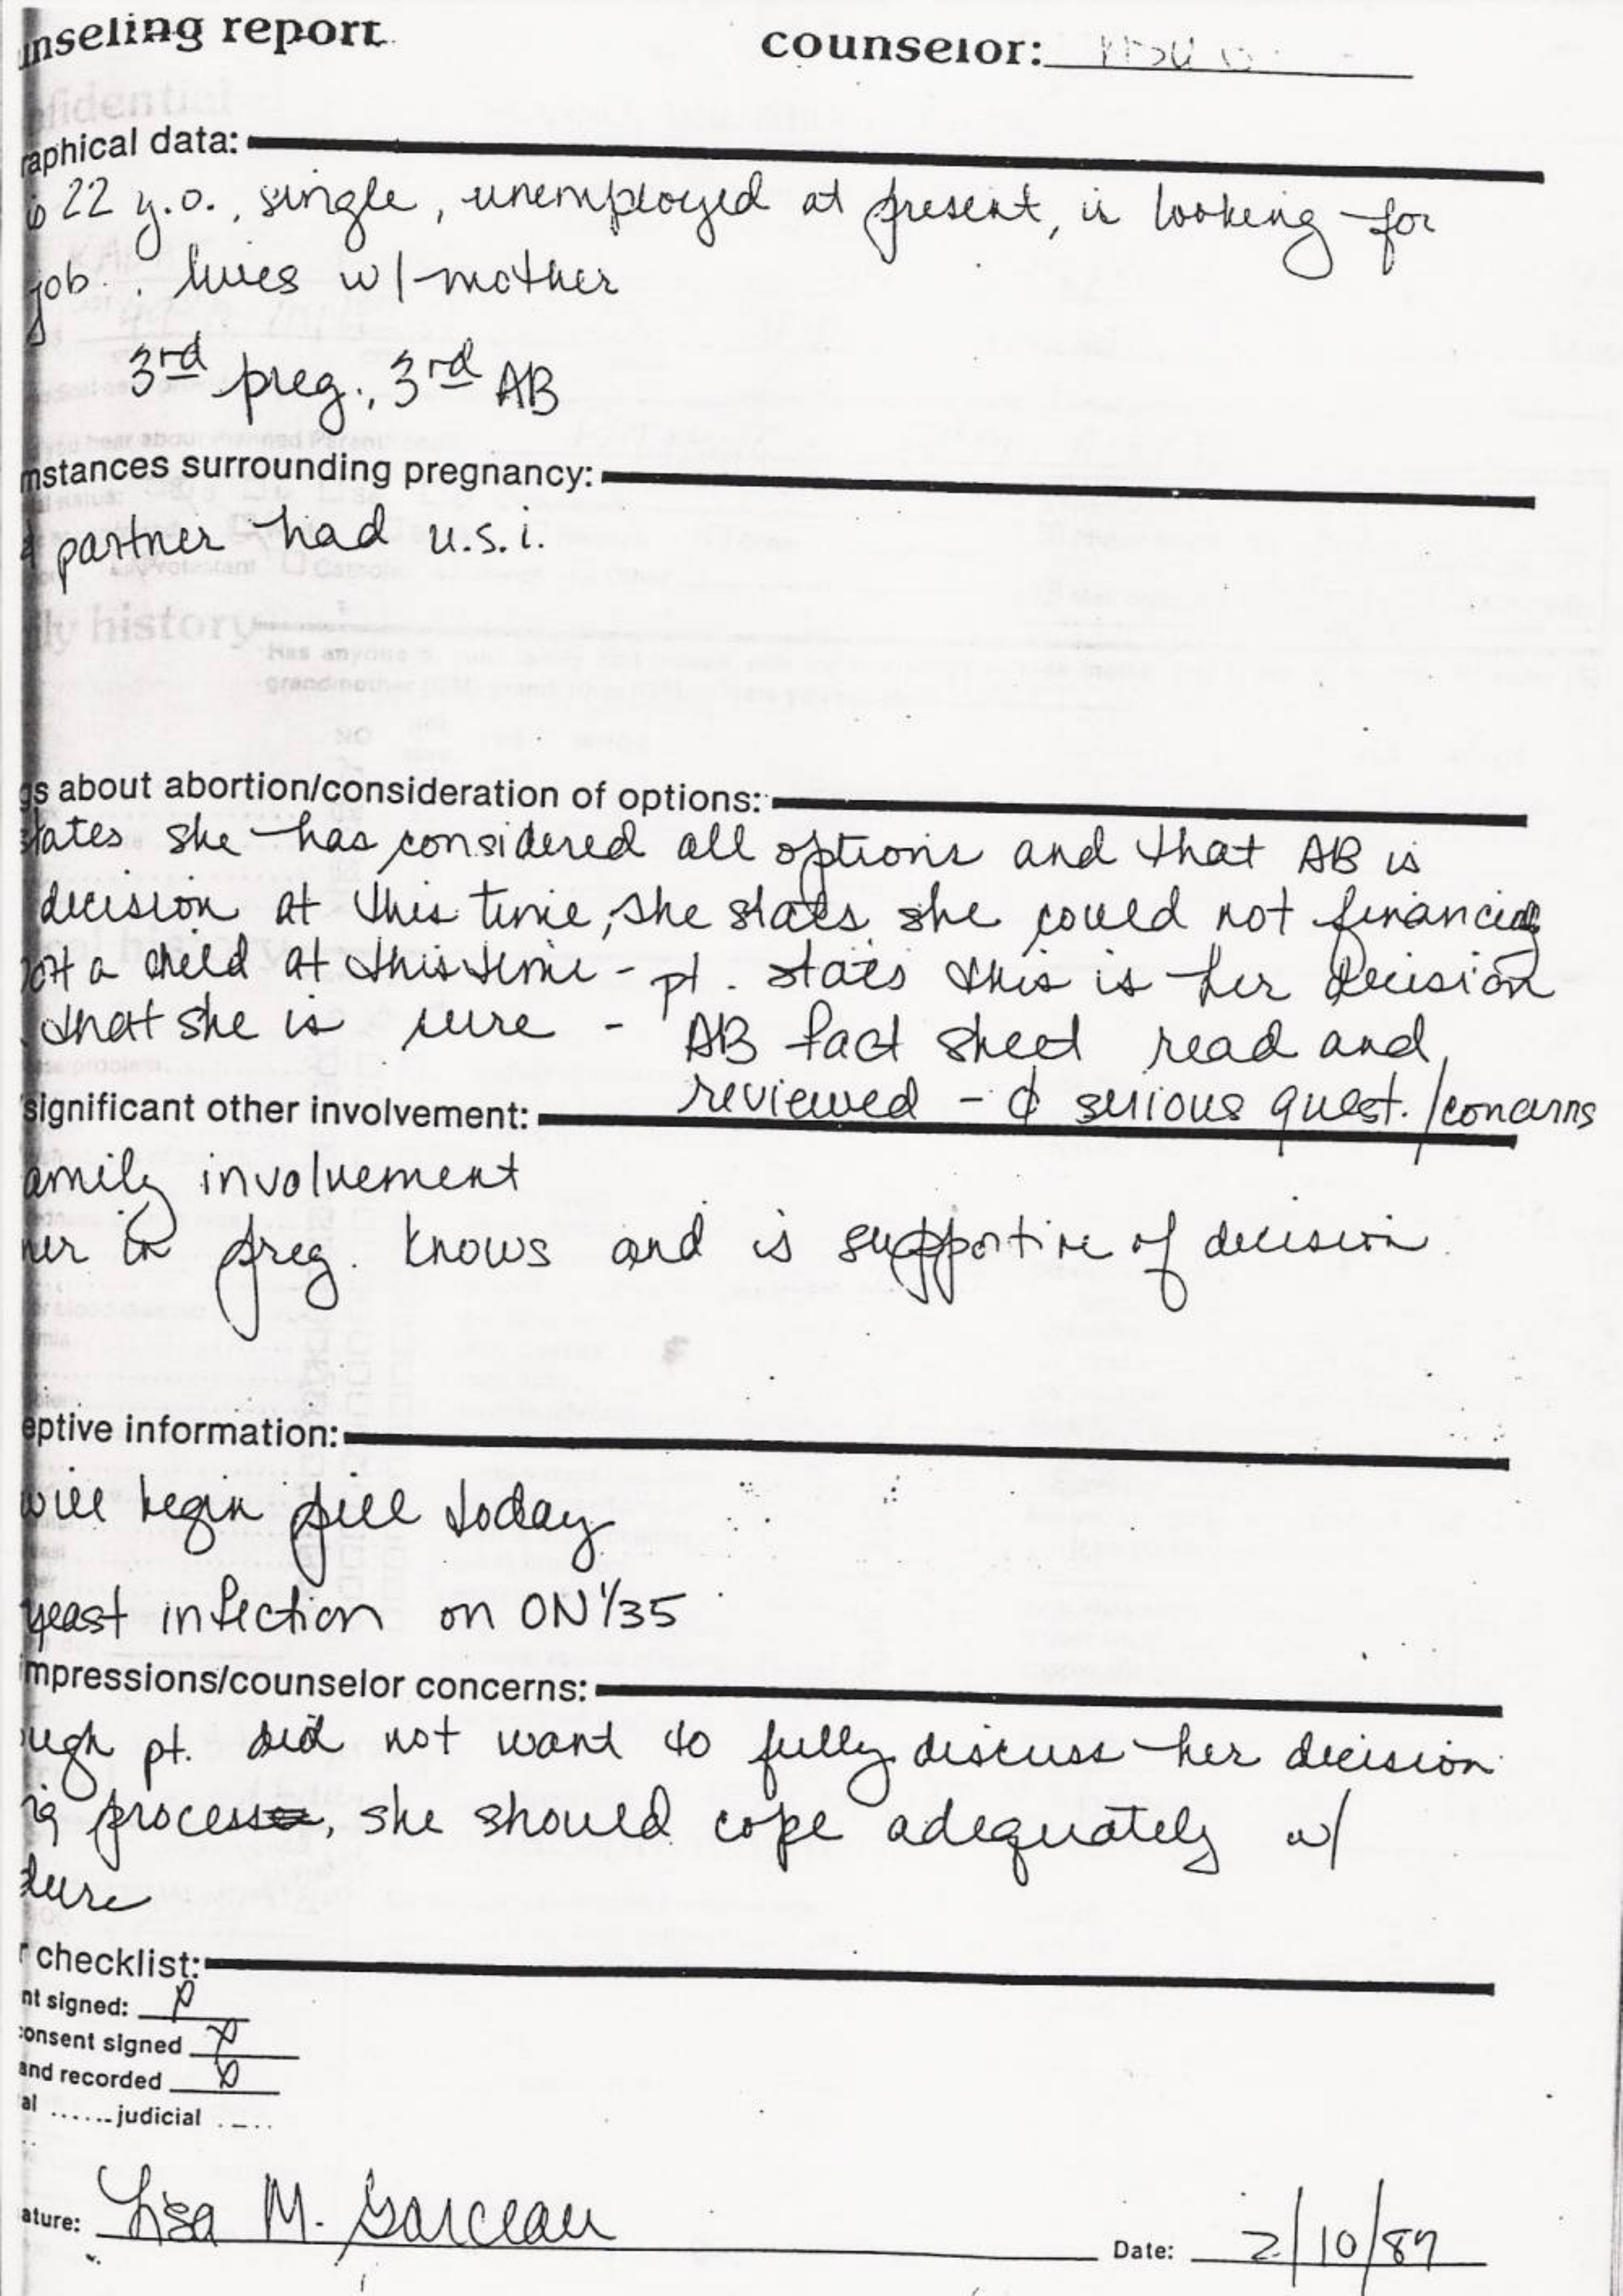 nseling report
counselor:
raphical data:
is 22 y.o., single, unemployed at present, is looking for
job. lives w/ mother
3rd preg., 3rd AB
mstances surrounding pregnancy:
partner had u.s.i.
gs about abortion/consideration of options:
states she has considered all options and that AB is
decision at this time, she states she could not financially
ort a child at this time - pt. states this is her decision
that she is sure - AB fact sheet read and
reviewed - ¢ serious quest./concerns
significant other involvement:
amily involvement
ner in preg. knows and is supportive of decision
eptive information:
will begin pill today
yeast infection on ON 1/35
impressions/counselor concerns:
ugh pt. did not want to fully discuss her decision
ng process, she should cope adequately w/
dure
r checklist:
nt signed:
consent signed
and recorded
al ...... judicial ....
ature: Lisa M. Garceau
Date: 2/10/87